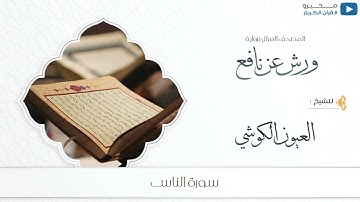 محبرو
القرآن الكريم
المصحف المرتل برواية
ورش عن نافع
للشيخ :
العيون الكوشي
سورة الناس